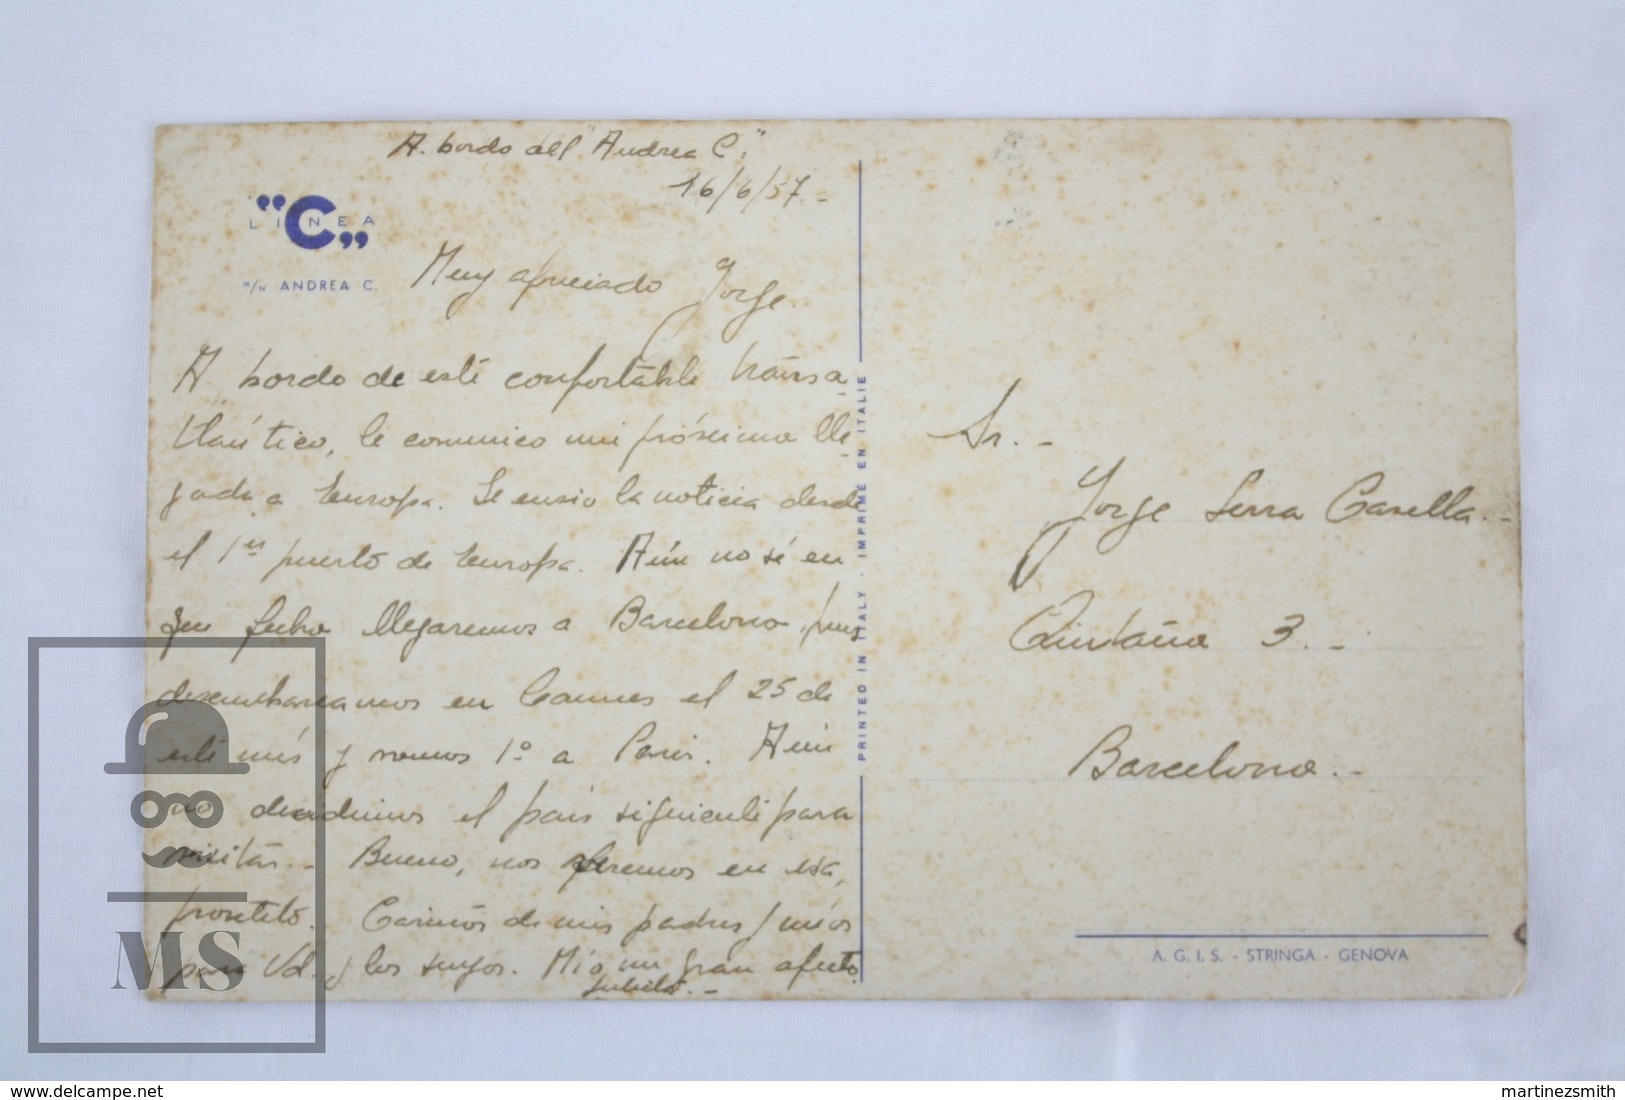 A. bordo del "Andrea C."
16/6/57.-
"C"
LINEA
M/N ANDREA C.
Muy apreciado Jorge.
A bordo de este confortable transa
tlántico, le comunico mi próxima lle
gada a Europa. Le envio la noticia desde
el 1er puerto de Europa. Aún no sé en
que fecha llegaremos a Barcelona, pues
desembarcamos en Cannes el 25 de
este mes y vamos 1º a Paris. Aún
no decidimos el pais siguiente para
visitar.- Bueno, nos veremos en esa,
prontito. Cariños de mis padres y mios
para Vd. y los suyos. Mio un gran afecto
PRINTED IN ITALY - IMPRIME EN ITALIE
Sr.-
Jorge Serra Casella.-
Quintana 3.-
Barcelona.-
A. G. I. S. - STRINGA - GENOVA
MS
www.delcampe.net
martinezsmith